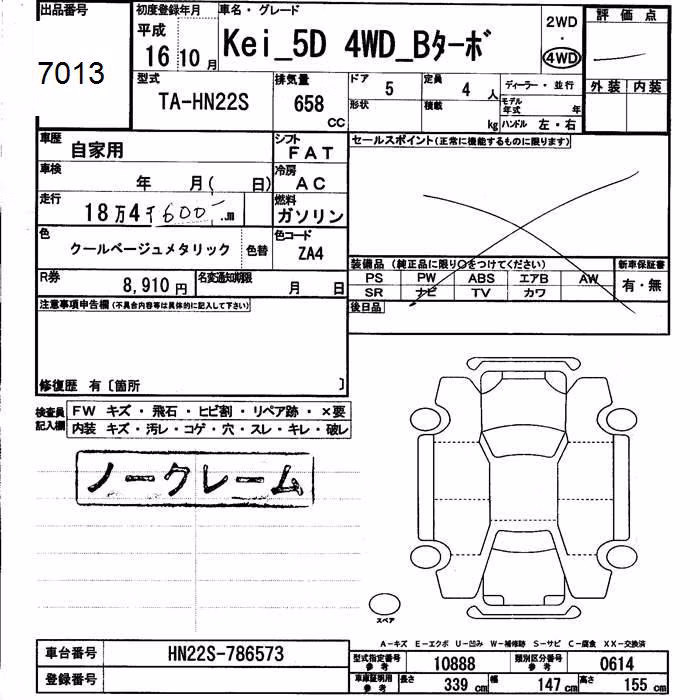 出品番号
7013
初度登録年月
平成
16 10 月
車名・グレード
Kei_5D 4WD_Bターボ
2WD
・
4WD
評価点
外装 内装
型式
TA-HN22S
排気量
658
CC
ドア
5
定員
4 人
ディーラー・並行
形状
積載
kg
モデル年式 年
ハンドル 左・右
車歴
自家用
シフト
FAT
セールスポイント(正常に機能するものに限ります)
車検
年 月( 日)
冷房
AC
走行
18万4千600 .m
燃料
ガソリン
色
クールベージュメタリック
色替
色コード
ZA4
R券
8,910 円
名変通知期限
月 日
装備品 (純正品に限り○をつけてください)
新車保証書
PS PW ABS エアB AW
有・無
SR ナビ TV カワ
後日品
注意事項申告欄(不具合内容等は具体的に記入して下さい)
修復歴 有〔箇所 〕
検査員
記入欄
FW キズ・飛石・ヒビ割・リペア跡・×要
内装 キズ・汚レ・コゲ・穴・スレ・キレ・破レ
ノークレーム
スペア
A-キズ E-エクボ U-凹み W-補修跡 S-サビ C-腐食 XX-交換済
車台番号
HN22S-786573
登録番号
型式指定番号
参考
10888
類別区分番号
参考
0614
車庫証明用
参考
長さ 339 cm
幅 147 cm
高さ 155 cm